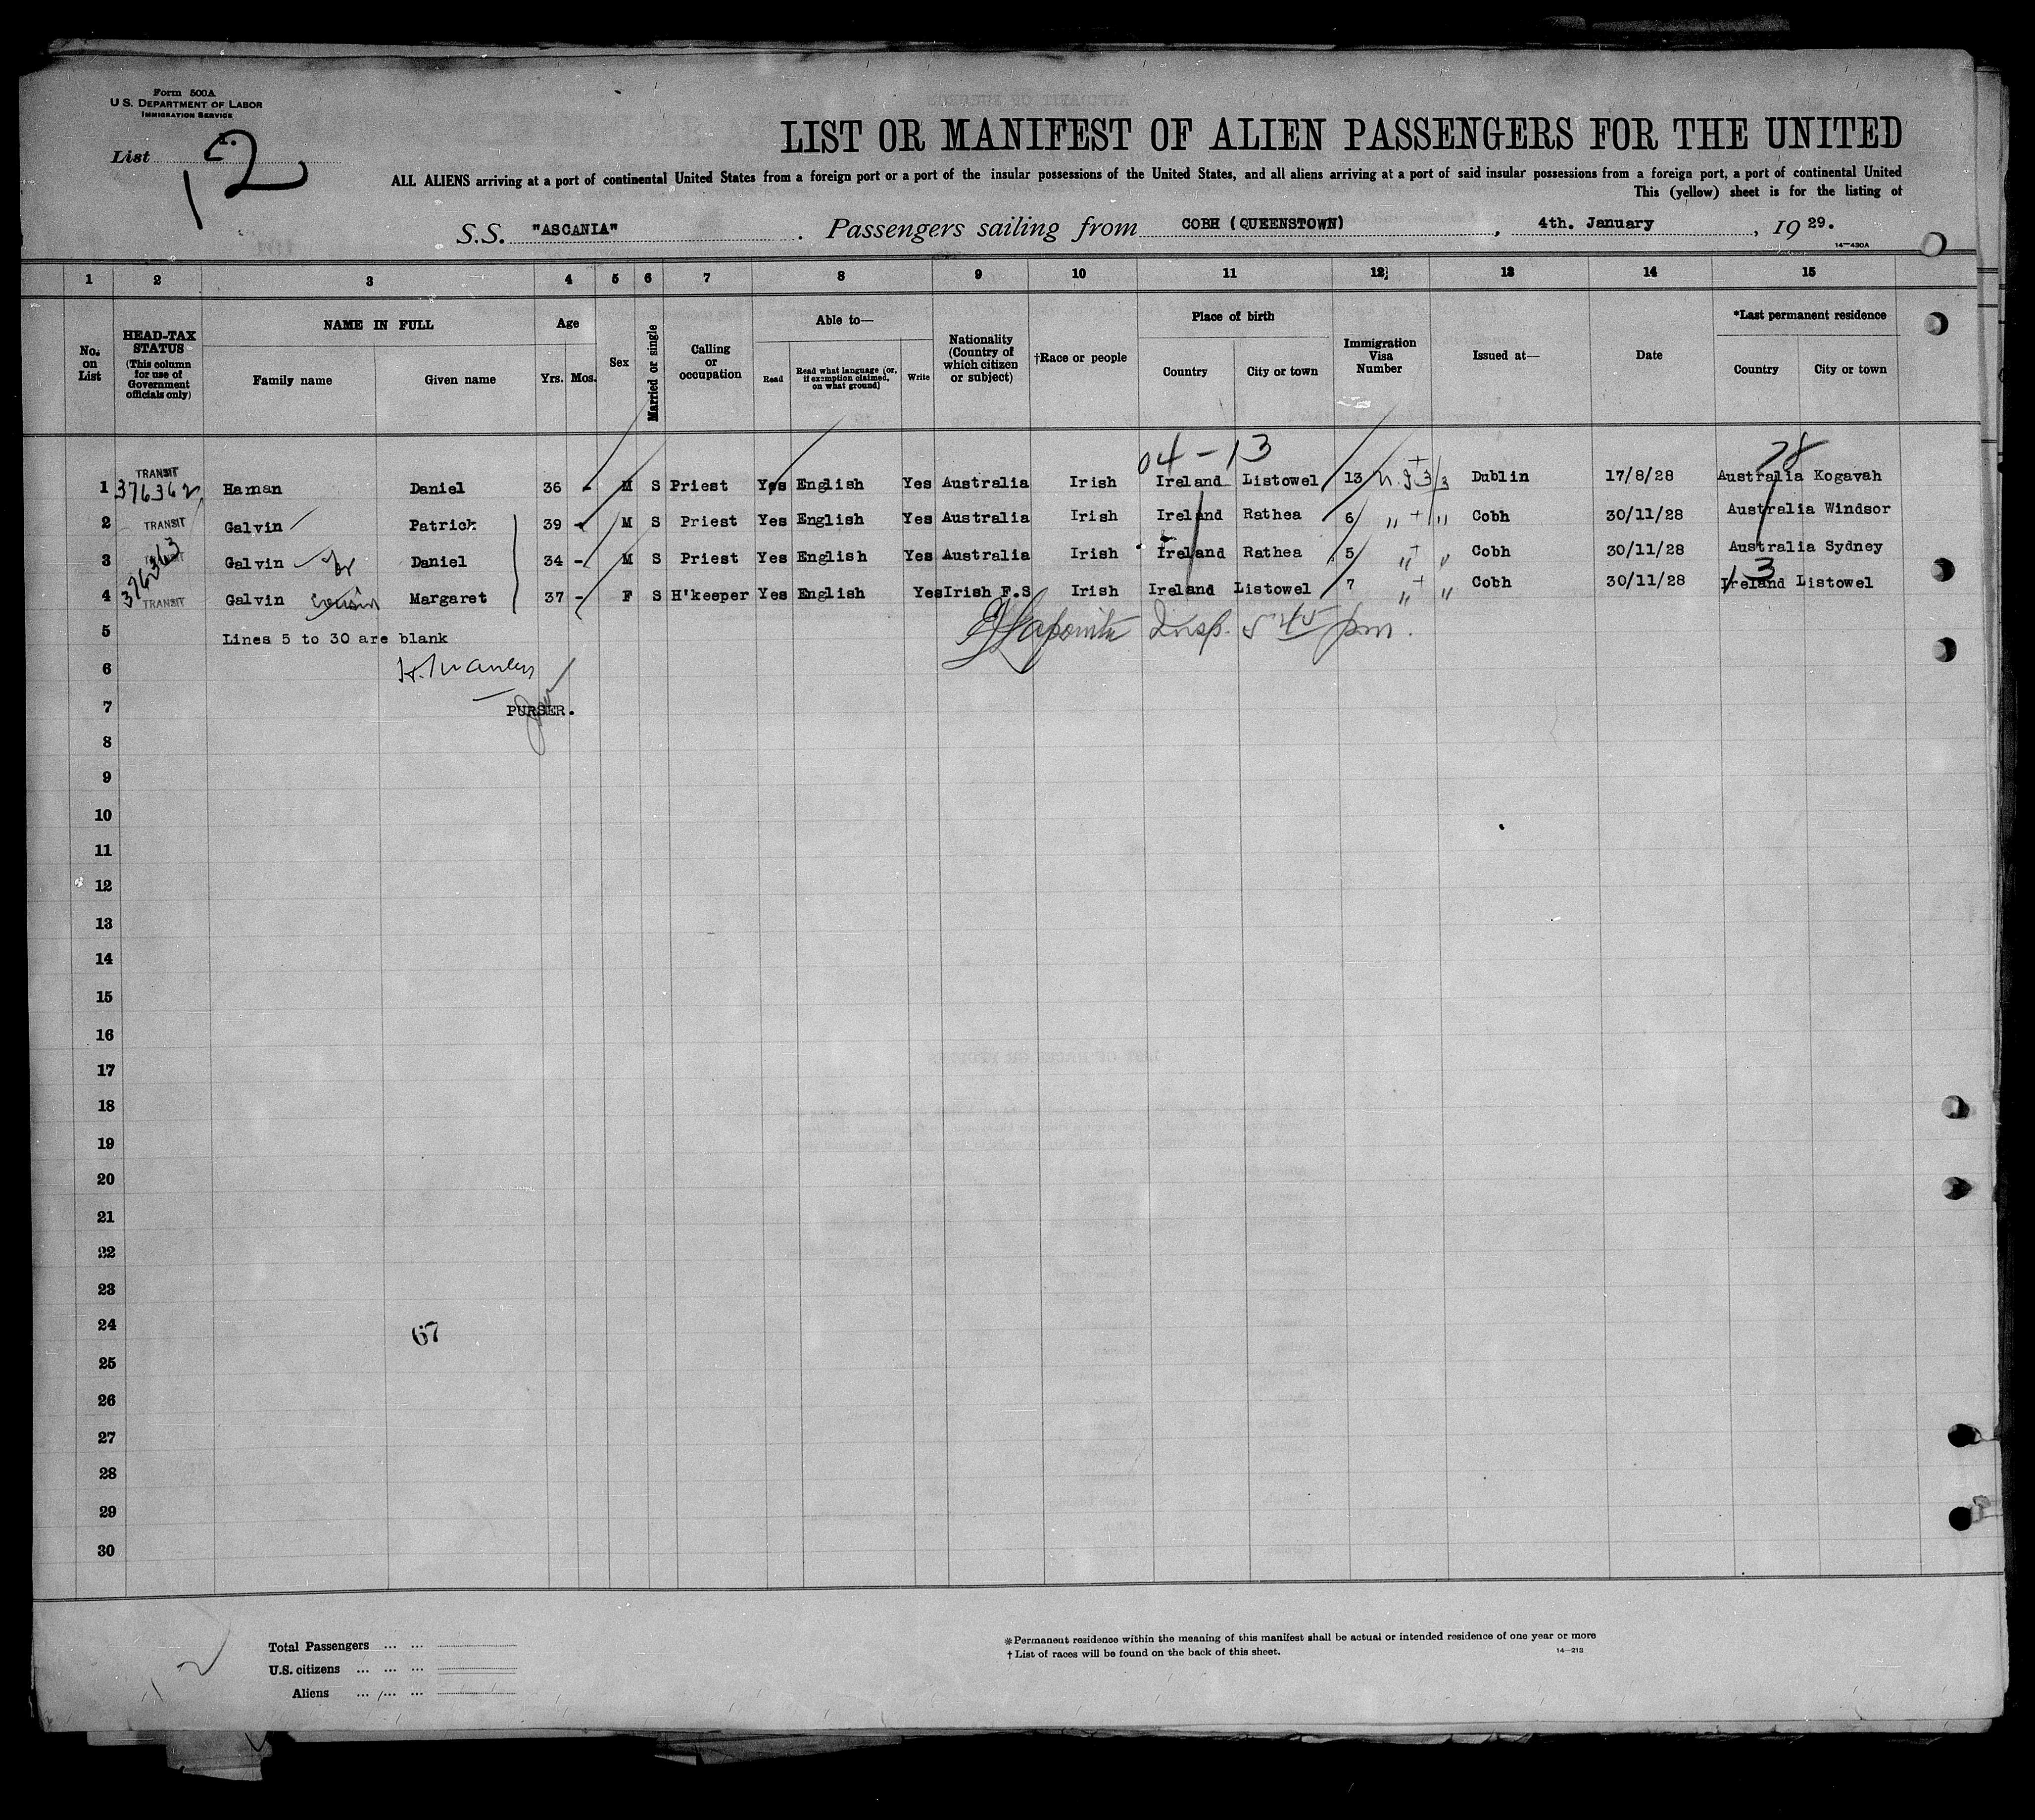 Form 500A
U S. DEPARTMENT OF LABOR
IMMIGRATION SERVICE
List 12
LIST OR MANIFEST OF ALIEN PASSENGERS FOR THE UNITED
ALL ALIENS arriving at a port of continental United States from a foreign port or a port of the insular possessions of the United States, and all aliens arriving at a port of said insular possessions from a foreign port, a port of continental United
This (yellow) sheet is for the listing of
S.S. "ASCANIA". Passengers sailing from COBH (QUEENSTOWN), 4th. January, 19 29.
14—430A
1 2 3 4 5 6 7 8 9 10 11 12 13 14 15
No. on List
HEAD-TAX STATUS (This column for use of Government officials only)
NAME IN FULL
Family name Given name
Age
Yrs. Mos.
Sex
Married or single
Calling or occupation
Able to—
Read Read what language (or, if exemption claimed, on what ground) Write
Nationality (Country of which citizen or subject)
†Race or people
Place of birth
Country City or town
Immigration Visa Number
Issued at—
Date
*Last permanent residence
Country City or town
04-13 28
1 TRANSIT 376362 Haman Daniel 36 - M S Priest Yes English Yes Australia Irish Ireland Listowel 13 3 Dublin 17/8/28 Australia Kogavah
2 TRANSIT Galvin Patrick 39 - M S Priest Yes English Yes Australia Irish Ireland Rathea 6 " " Cobh 30/11/28 Australia Windsor
3 376363 TRANSIT Galvin Daniel 34 - M S Priest Yes English Yes Australia Irish Ireland Rathea 5 " " Cobh 30/11/28 Australia Sydney
13
4 TRANSIT Galvin cousin Margaret 37 - F S H'keeper Yes English Yes Irish F.S Irish Ireland Listowel 7 " " Cobh 30/11/28 Ireland Listowel
5 Lines 5 to 30 are blank Insp. 5 45 pm.
6 H. Manley
7 PURSER.
8
9
10
11
12
13
14
15
16
17
18
19
20
21
22
23
24 67
25
26
27
28
29
30
Total Passengers ... ...
U.S. citizens ... ... ...
Aliens ... ... ...
*Permanent residence within the meaning of this manifest shall be actual or intended residence of one year or more
† List of races will be found on the back of this sheet. 14—213